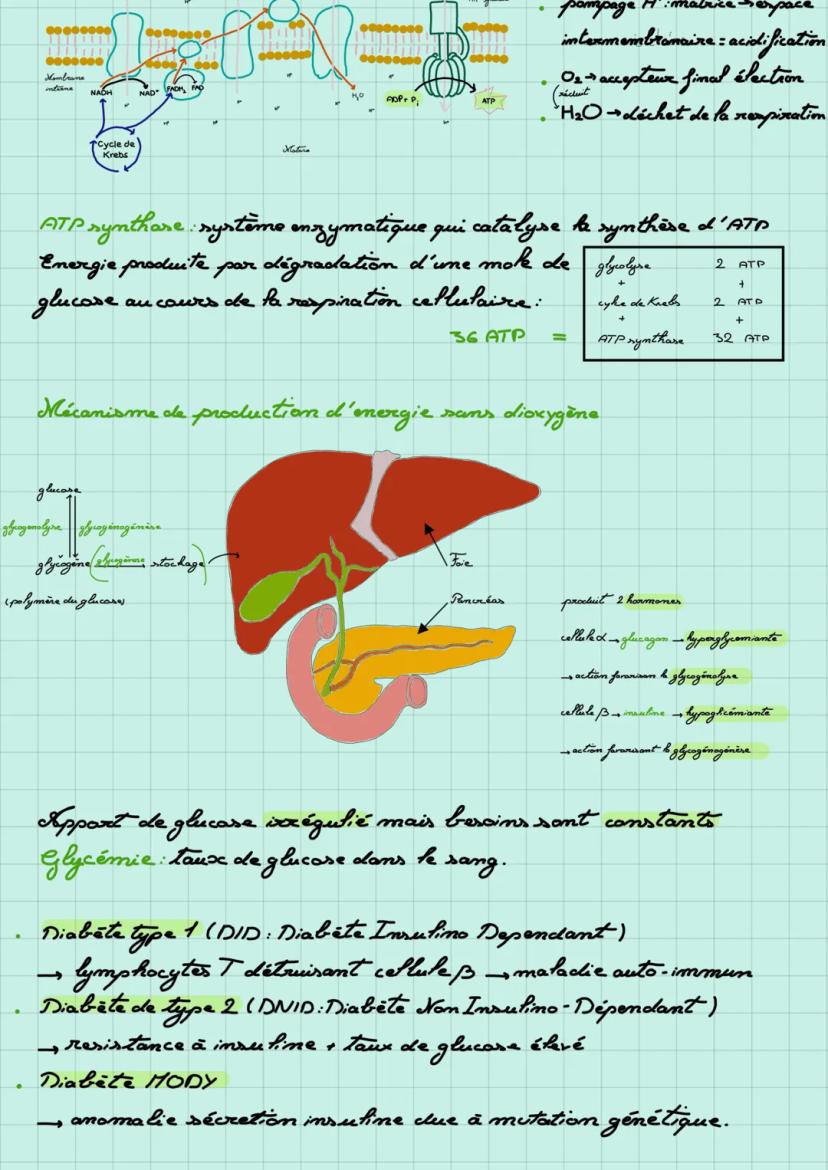 pompage H⁺: matrice → espace
intermembranaire = acidification
O₂ → accepteur final électron
réduit
H₂O → déchet de la respiration
Membrane
interne
NADH
NAD⁺
FADH₂
FAD
H₂O
ADP + Pi
ATP
Cycle de
Krebs
Matrice
ATP synthase : système enzymatique qui catalyse la synthèse d'ATP
Energie produite par dégradation d'une mole de
glucose au cours de la respiration cellulaire :
36 ATP =
glycolyse 2 ATP
+ +
cycle de Krebs 2 ATP
+ +
ATP synthase 32 ATP
Mécanisme de production d'energie sans dioxygène
glucose
glycogenolyse glycogénogénèse
glycogène (glycogénose → stockage)
(polymère du glucose)
Foie
Pancréas
produit 2 hormones
cellule α → glucagon → hyperglycemiante
→ action favorisant la glycogénolyse
cellule β → insuline → hypoglicémiante
→ action favorisant la glycogénogénèse
Apport de glucose irrégulié mais besoins sont constants
Glycémie : taux de glucose dans le sang.
Diabète type 1 (DID : Diabète Insulino Dependant)
→ lymphocytes T détruisant cellule β → maladie auto-immun
Diabète de type 2 (DNID : Diabète Non Insulino-Dépendant)
→ resistance à insuline + taux de glucose élevé
Diabète MODY
→ anomalie sécrétion insuline due à mutation génétique.